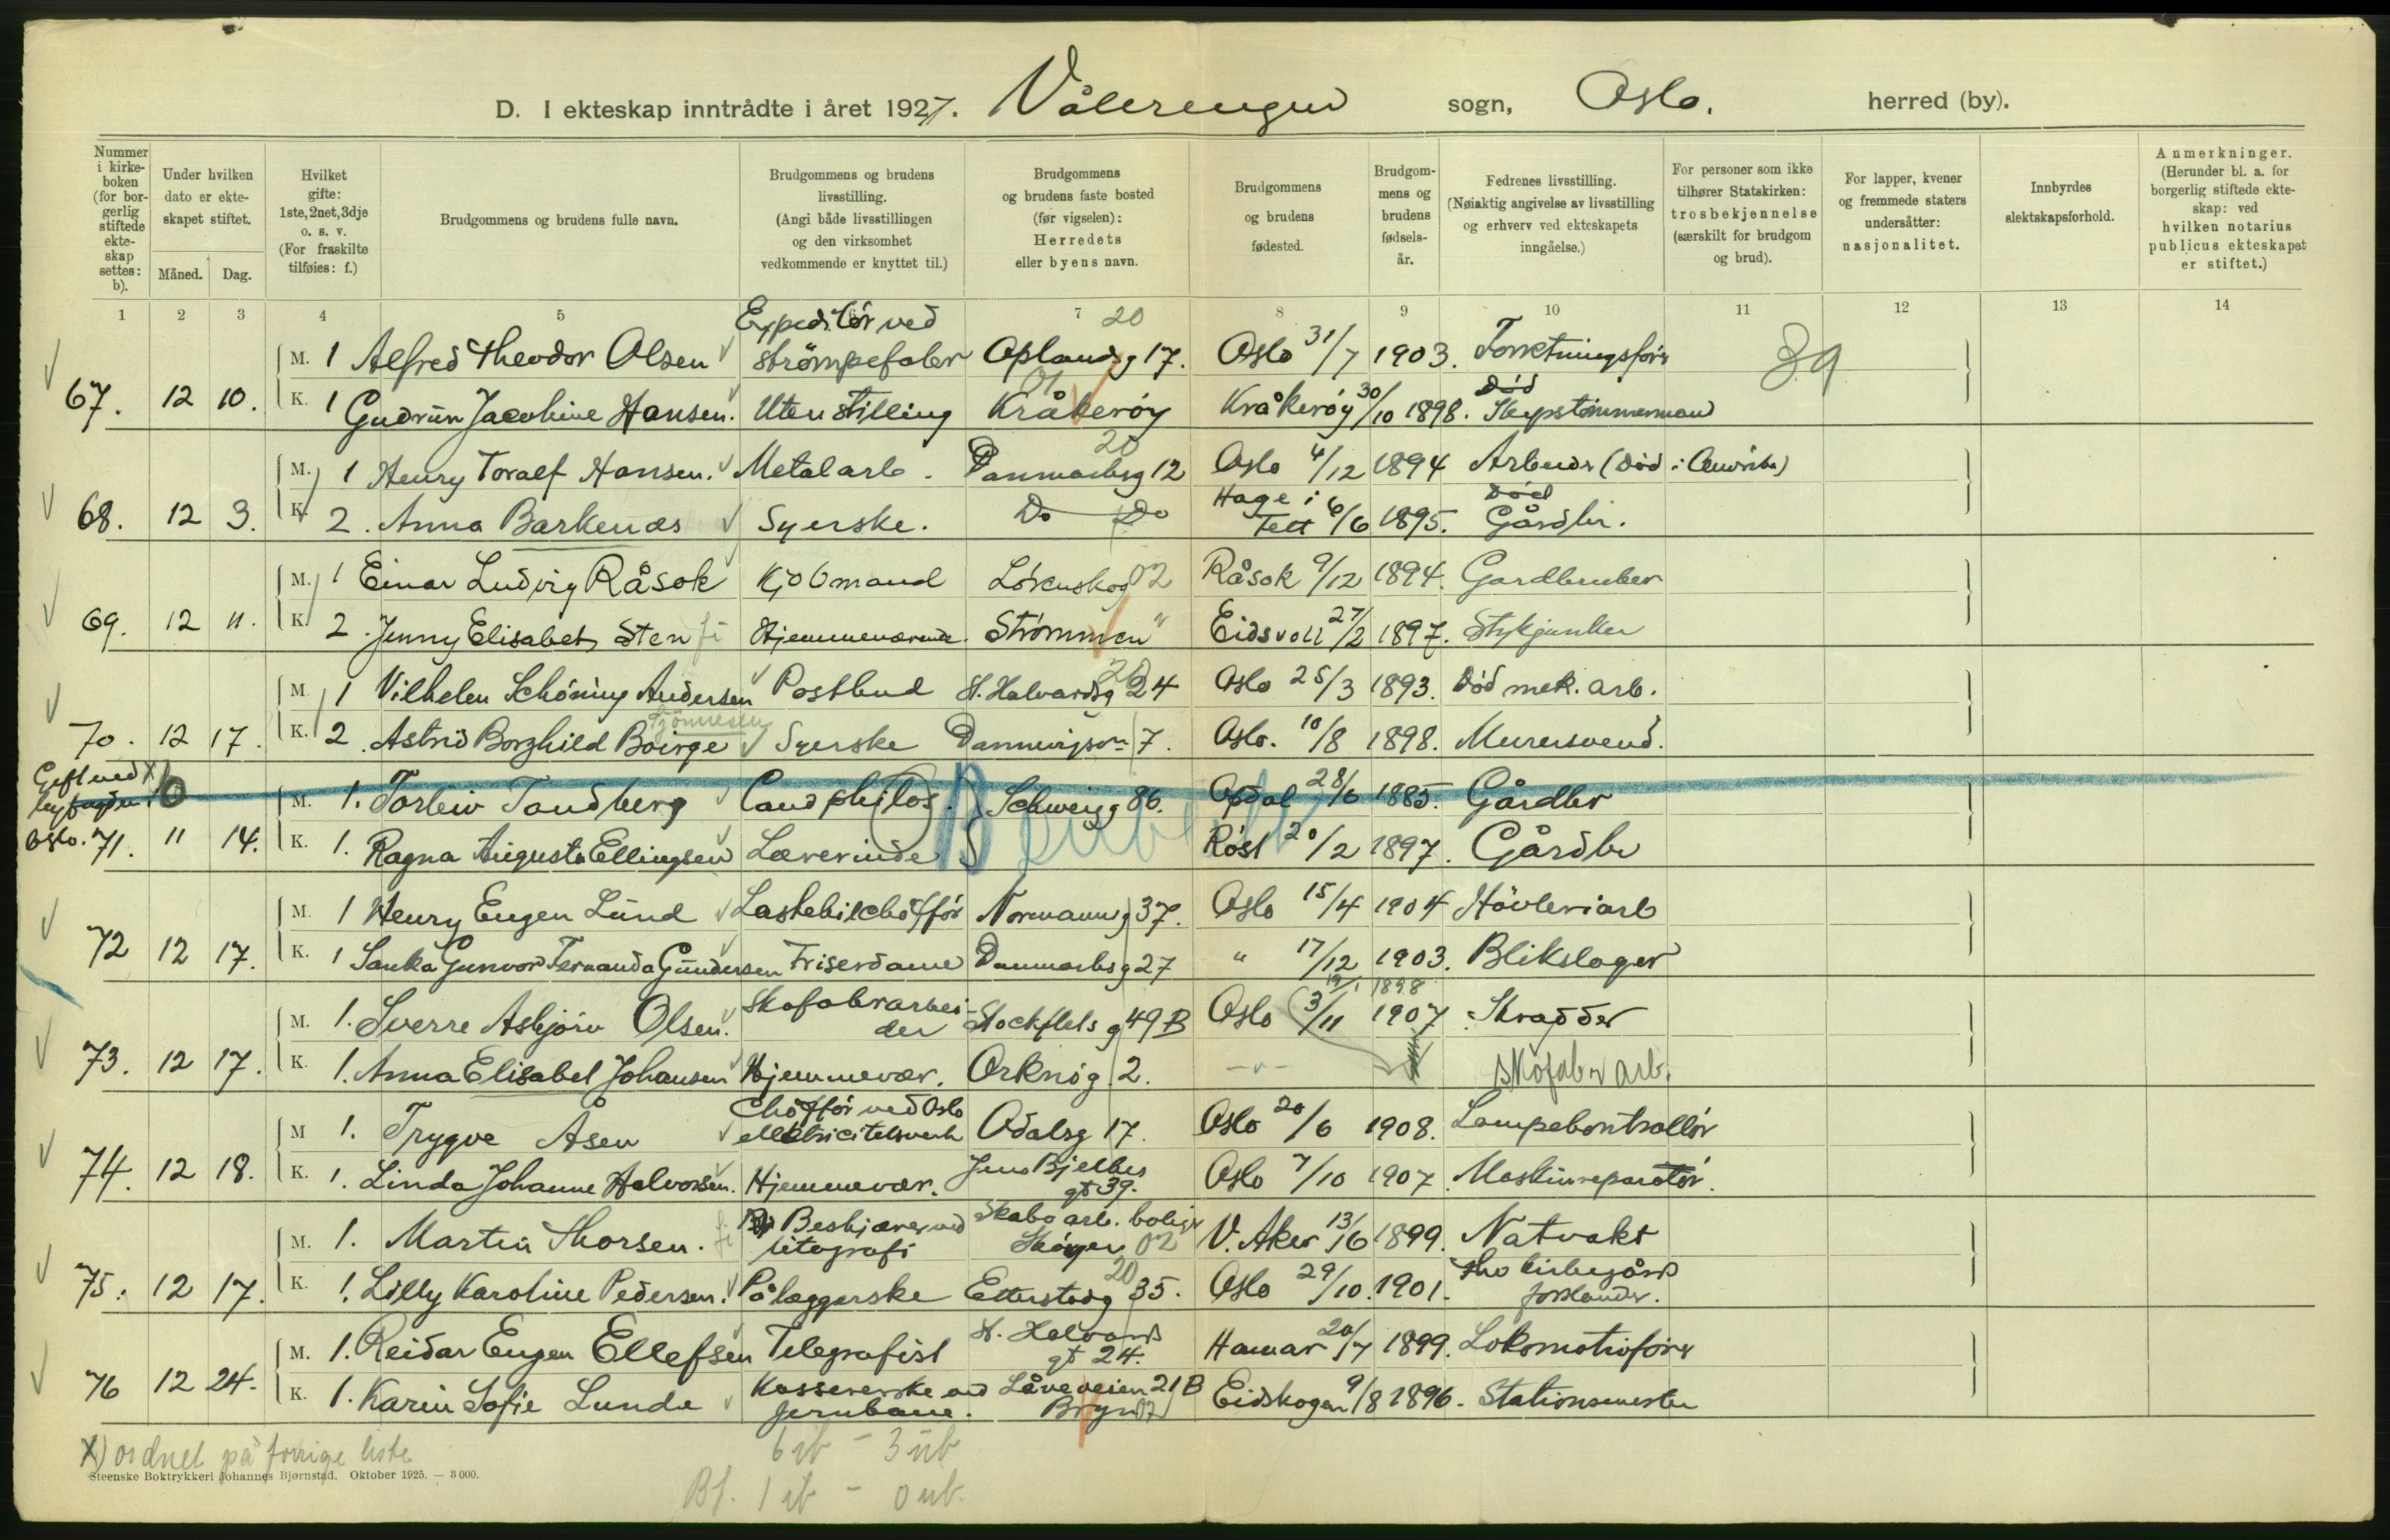 D. I ekteskap inntrådte i året 1927. Vålerengen sogn, Oslo. herred (by).
Nummer i kirke-boken (for bor-gerlig stiftede ekte-skap settes: b).
Under hvilken dato er ekte-skapet stiftet.
Måned. Dag.
Hvilket gifte: 1ste, 2net, 3dje o. s. v. (For fraskilte tilføies: f.)
Brudgommens og brudens fulle navn.
Brudgommens og brudens livsstilling. (Angi både livsstillingen og den virksomhet vedkommende er knyttet til.)
Brudgommens og brudens faste bosted (før vigselen): Herredets eller byens navn.
Brudgommens og brudens fødested.
Brudgom-mens og brudens fødsels-år.
Fedrenes livsstilling. (Nøiaktig angivelse av livsstilling og erhverv ved ekteskapets inngåelse.)
For personer som ikke tilhører Statskirken: trosbekjennelse (særskilt for brudgom og brud).
For lapper, kvener og fremmede staters undersåtter: nasjonalitet.
Innbyrdes slektskapsforhold.
Anmerkninger. (Herunder bl. a. for borgerlig stiftede ekte-skap: ved hvilken notarius publicus ekteskapet er stiftet.)
1 2 3 4 5 7 8 9 10 11 12 13 14
Expeditör ved 20
M. 1 Alfred Theodor Olsen strömpefabr Oplandsg 17. Oslo 31/7 1903. Forretningsför 89
01 Död
67. 12 10. K. 1 Gudrun Jacobine Hansen. Uten stilling Kråkeröy Kråkeröy 30/10 1898. Skipstömmermand
20
M. 1 Henry Toralf Hansen. Metalarb. Danmarksg 12 Oslo 4/12 1894 Arbeider (död i Amerika)
Hage i Död
68. 12 3. K. 2. Anna Barkenæs Syerske. Do Do 6/6 1895. Gårdbr.
M. 1 Einar Ludvig Råsok Kjöbmand Lörenskog 02 Råsok 9/12 1894. Gardbruker
69. 12 11. K. 2. Jenny Elisabet Sten fi Hjemmeværende. Strömmen " Eidsvoll 27/2 1897.
20
M. 1 Vilhelm Schöning Andersen Postbud St. Halvardsg 24 Oslo 25/3 1893. död mek. arb.
Tjönnesen
70. 12 17. K. 2. Astrid Borghild Boirge Syerske 7. Oslo. 10/8 1898. Murersvend.
Gift ved x)
byfogden i 0 M. 1. Torleiv Tandberg Cand philos. Schweigg 86. Opdal 28/6 1885. Gårdbr
Oslo. 71. 11 14. K. 1. Ragna Augusta Ellingsen Lærerinde Röst 20/2 1897. Gårdbr
M. 1 Henry Eugen Lund Lastebilchófför Normannsg 37. Oslo 15/4 1904 Hövleriarb
72 12 17. K. 1 Sanka Gunvor Fernanda Gundersen Friserdame Danmarksg 27 " 17/12 1903. Blikslager
Skofabrarbei- 19/1 1898
M. 1. Sverre Asbjörn Olsen. der Stockflets g 49 B Oslo 3/11 1907 Skrædder
73. 12 17. K. 1. Anna Elisabet Johansen Hjemmevær. Orknög. 2. -"- skofabr arb.
Chófför ved Oslo
M 1. Trygve Åsen elektricitetsverk Odalsg 17. Oslo 20/6 1908. Lampekontrollör
Jens Bjelkes
74. 12 18. K. 1. Linda Johanne Halvorsen. Hjemmevær. gt 39. Oslo 7/10 1907. Maskinreparatör.
Beskjærer ved Skabo arb. bolig
M. 1. Martin Thorsen. fi litografi Skóyen 02 V. Aker 13/6 1899. Natvakt
20 kirkegårds
75. 12 17. K. 1. Lilly Karoline Pedersen. Pålæggerske Etterstadg 35. Oslo 29/10 1901. forstander.
St. Halvards
M. 1. Reidar Eugen Ellefsen Telegrafist gt 24. Hamar 20/7 1899. Lokomotivförer
Kassererske ved Låveveien 21 B
76 12 24. K. 1. Karin Sofie Lunde jernbane. Bryn 02 Eidskogen 9/8 1896. Stationsmester
X) ordnet på forrige liste 6 ib - 3 ub
Steenske Boktrykkeri Johannes Bjørnstad. Oktober 1925. — 3 000.
Bf. 1 ib - 0 ub.